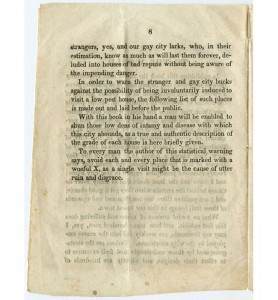 8
strangers, yes, and our gay city larks, who, in their
estimation, know as much as will last them forever, de-
luded into houses of bad repute without being aware of
the impending danger.
In order to warn the stranger and gay city bucks
against the possibility of being involuntarily reduced to
visit a low pest house, the following list of such places
is made out and laid before the public.
With this book in his hand a man will be enabled to
shun those low dens of infamy and disease with which
this city abounds, as a true and authentic description of
the grade of each house is here briefly given.
To every man the author of this statistical warning
says, avoid each and every place that is marked with a
woeful X, as a single visit might be the cause of utter
ruin and disgrace.